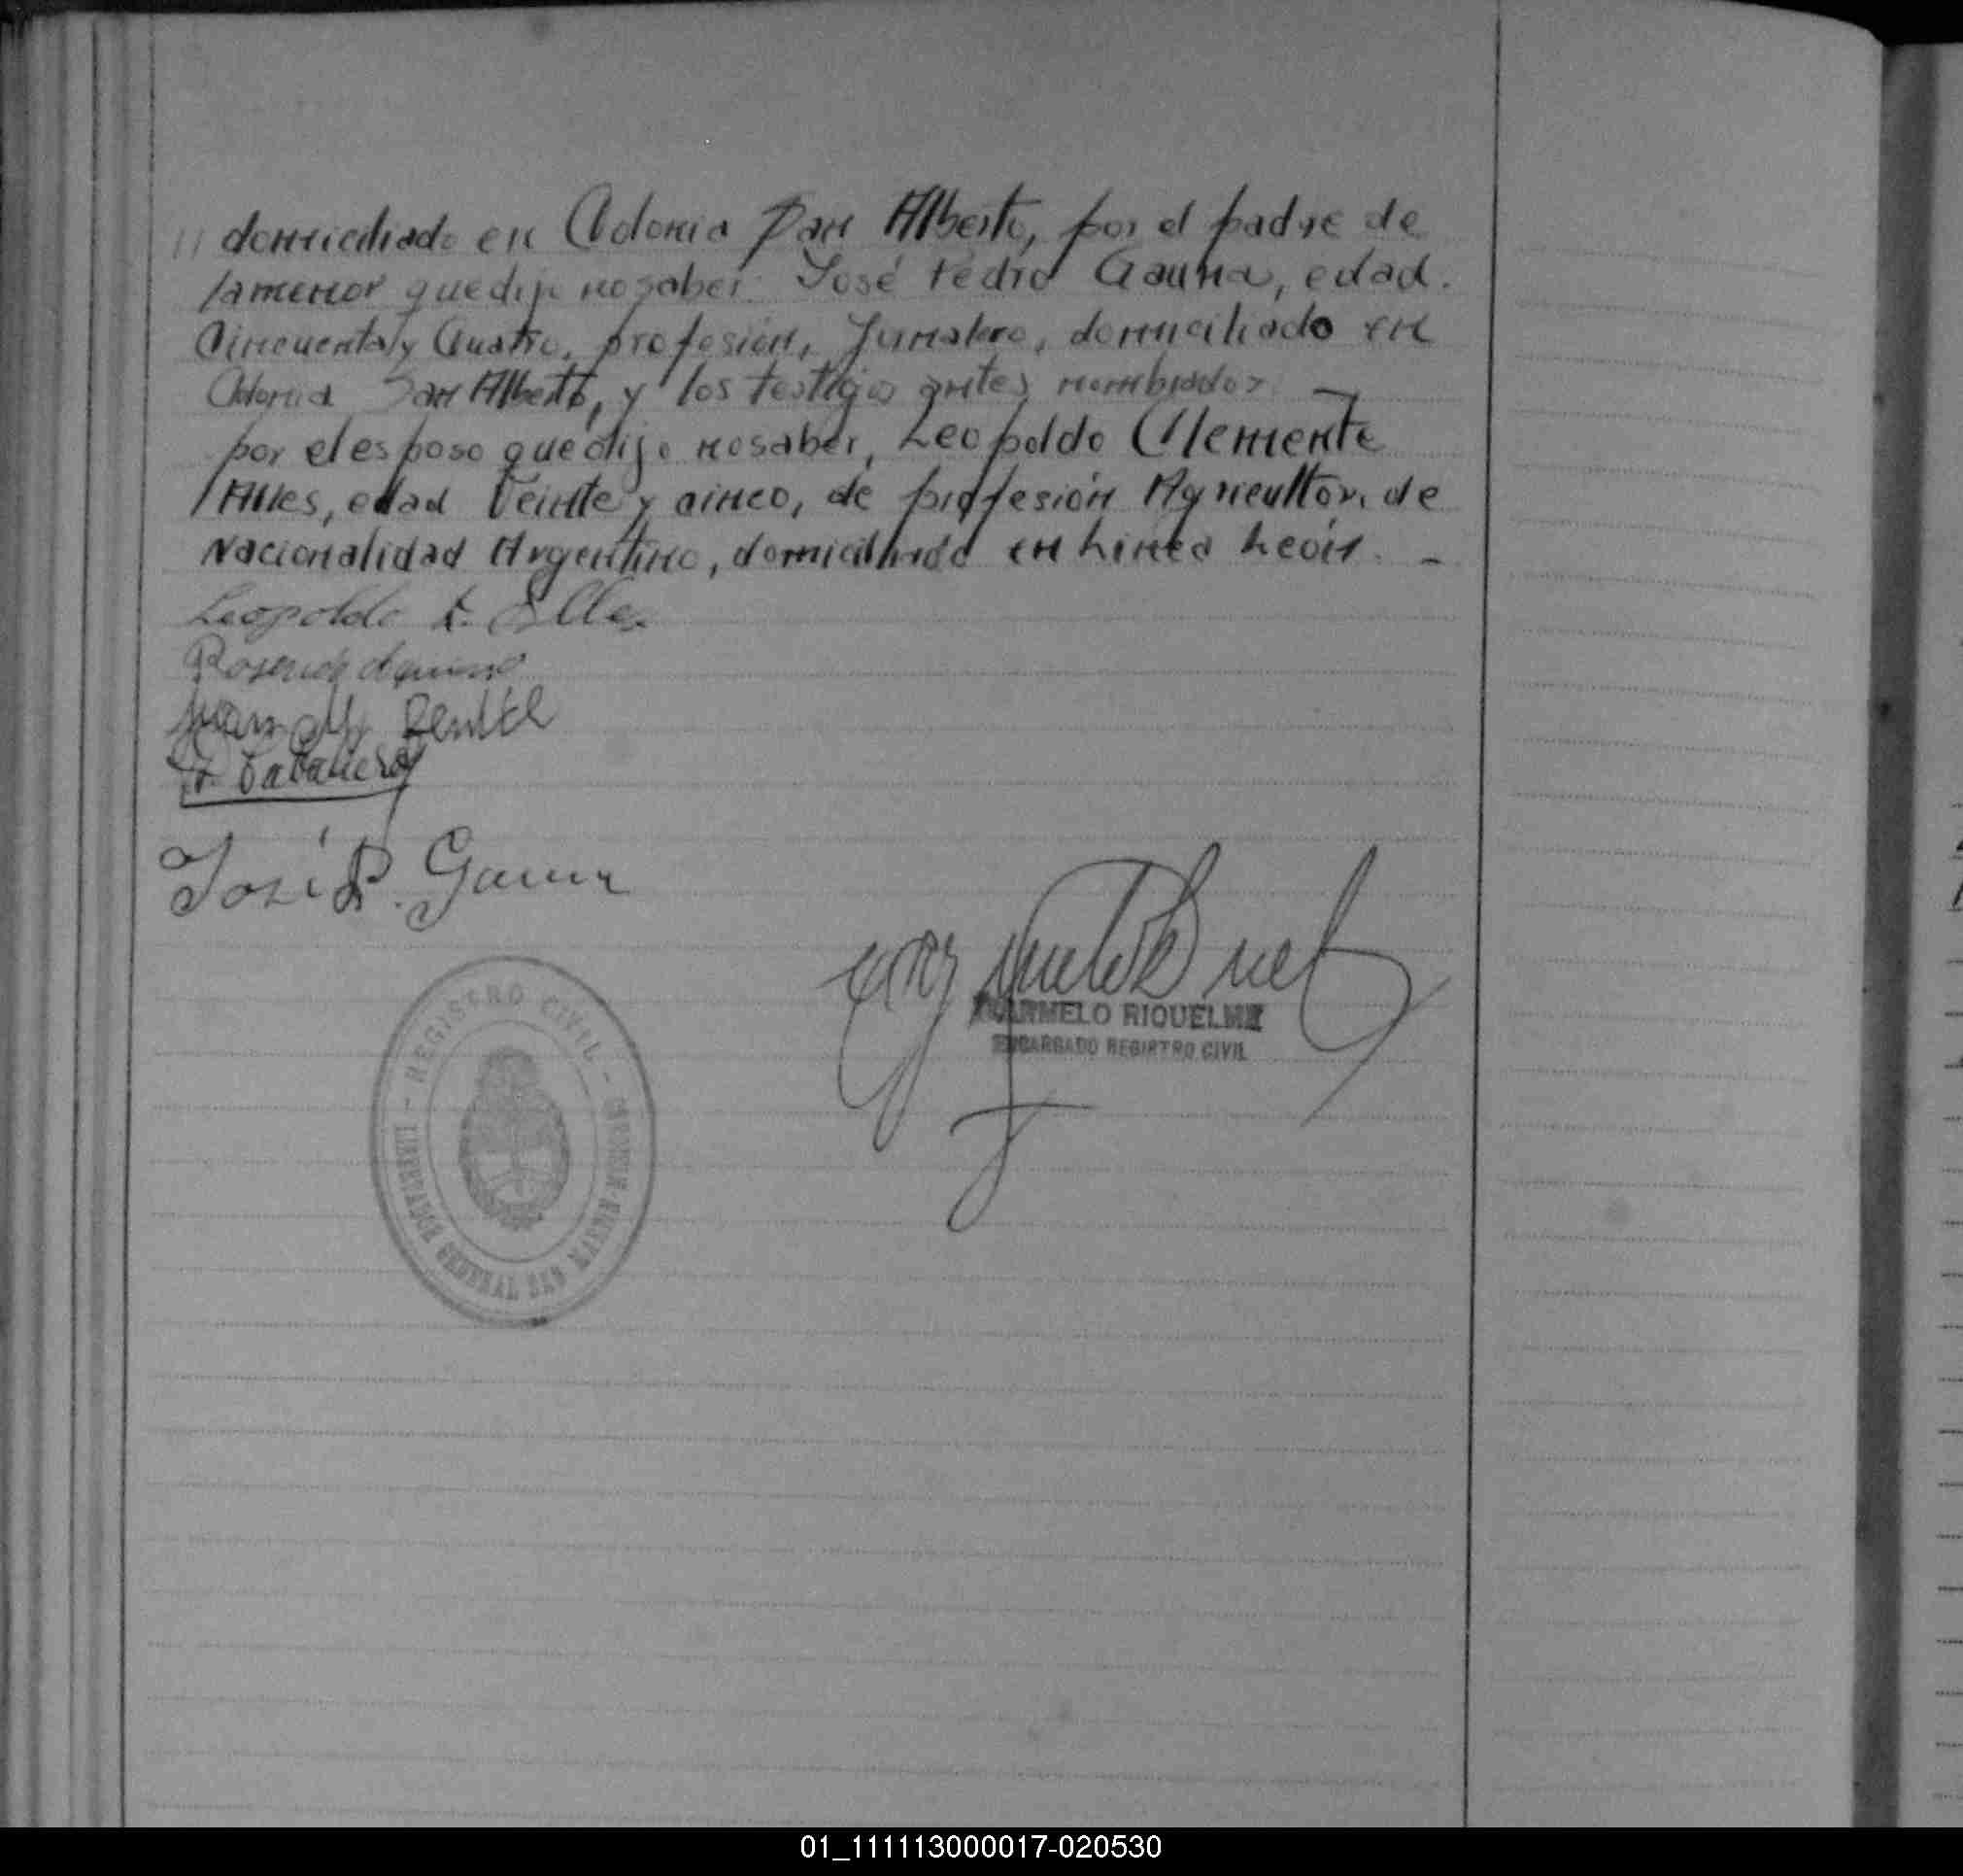 // domiciliado en Colonia San Alberto, por el padre de
la menor que dijo no saber. José Pedro Gauna, edad.
Cincuenta y Cuatro, profesión, Jornalero, domiciliado en
Colonia San Alberto, y los testigos antes nombrados —
por el esposo que dijo no saber, Leopoldo Clemente
Alles, edad Veinte y cinco, de profesión Agricultor, de
Nacionalidad Argentino, domiciliado en Linea León. -
Leopoldo
Juan
Caballero
José P. Gauna
CARMELO RIQUELME
ENCARGADO REGISTRO CIVIL
- REGISTRO CIVIL -
LIBERTADOR GENERAL SAN
01_111113000017-020530